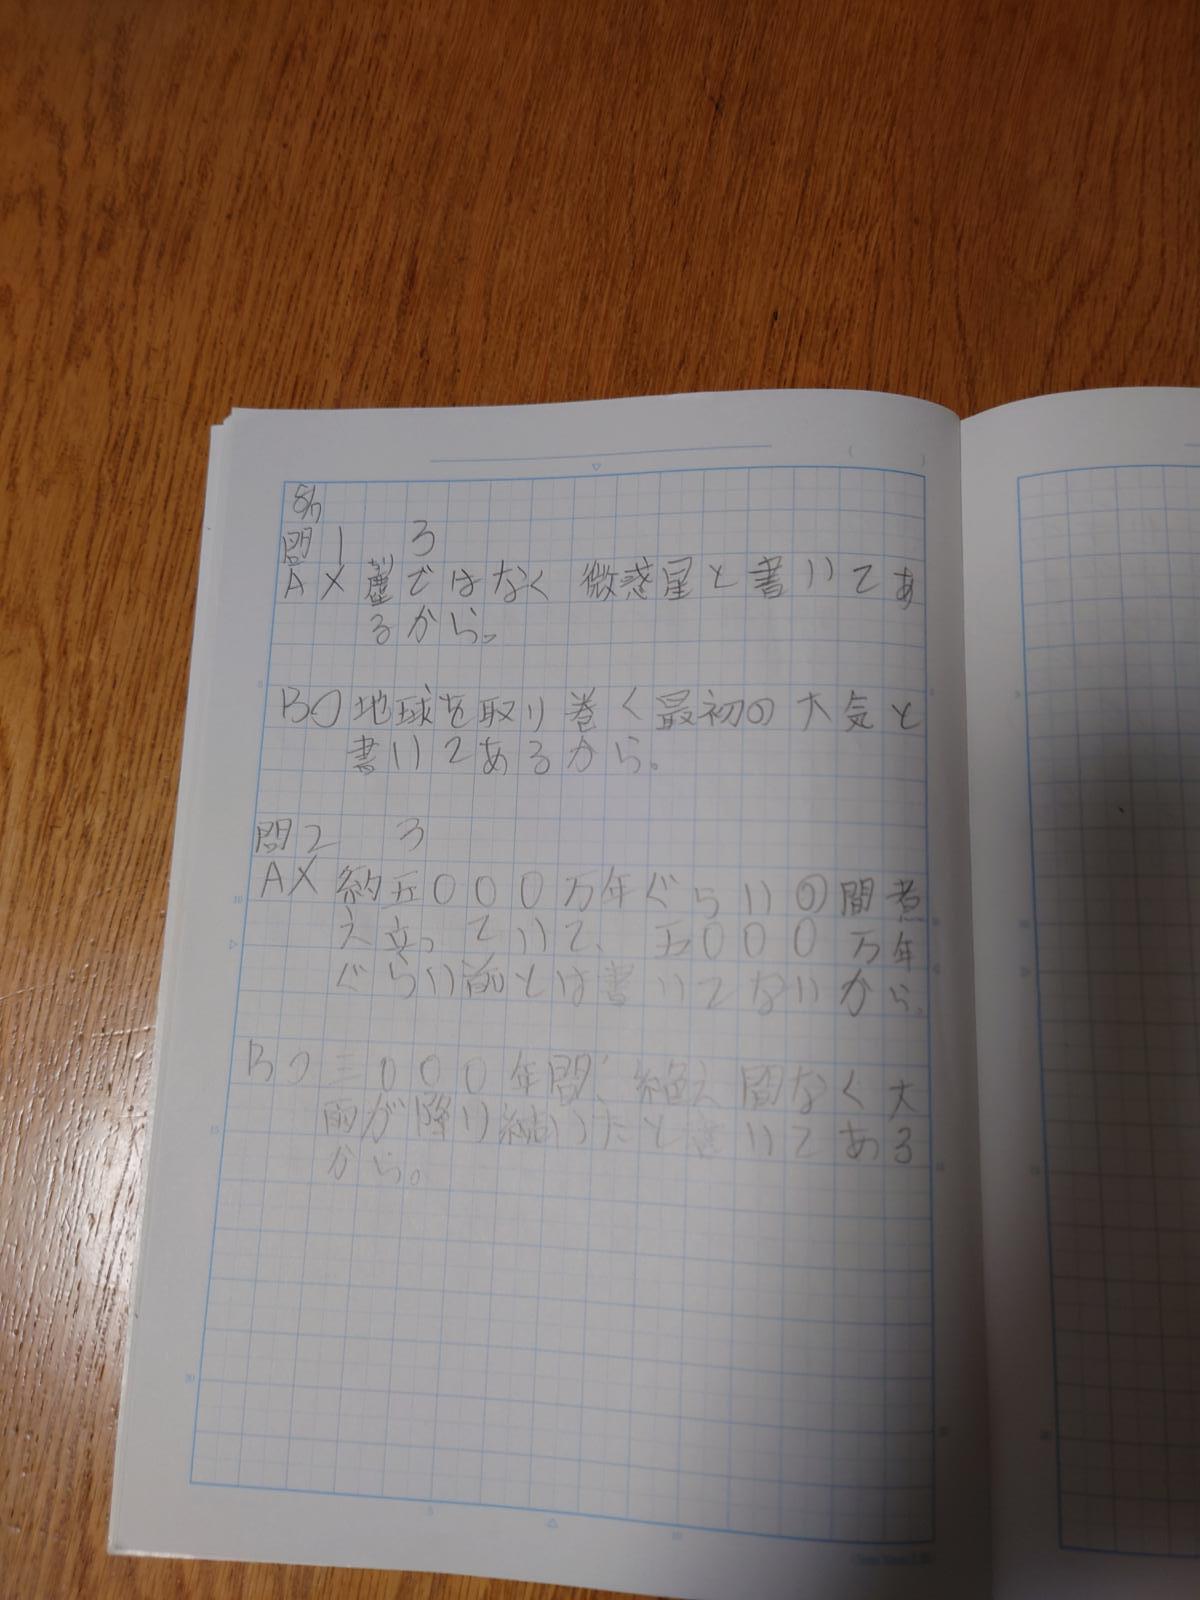 8/7
問1 3
A×塵ではなく微惑星と書いてあ
るから。
B○地球を取り巻く最初の大気と
書いてあるから。
問2 3
A×約五〇〇〇万年ぐらいの間煮
え立っていて、五〇〇〇万年
ぐらい前とは書いてないから。
B○三〇〇〇年間、絶え間なく大
雨が降り続いたと書いてある
から。